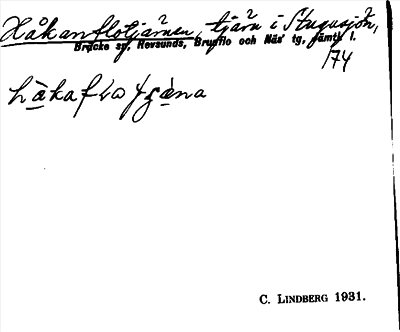 Håkanflotjärnen, tjärn i Stugusjön,
Bräcke sn, Revsunds, Brunflo och Näs' tg, Jämtl l.
174
C. LINDBERG 1931.